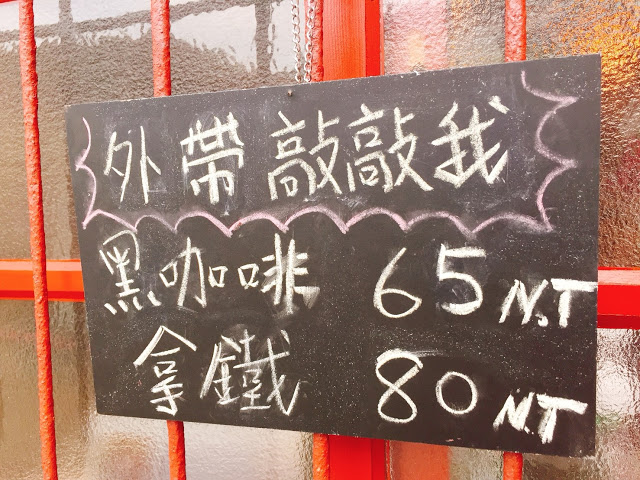 外帶敲敲我
黑咖啡 65 N.T
拿鐵 80 N.T